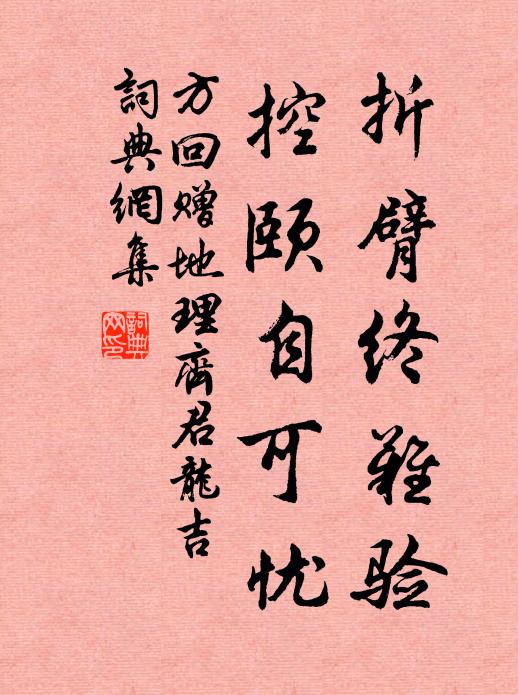 折臂终难验
控颐自可忧
方回赠地理齐君龍吉
詞典網集
詞典网印